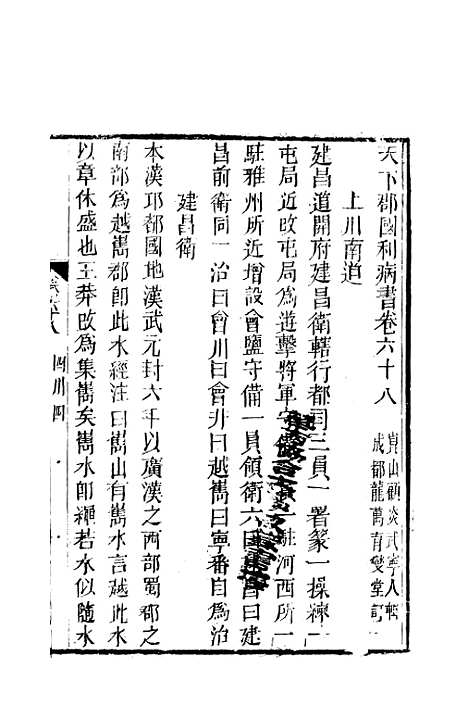 天下郡國利病書卷六十八
崑山顧炎武寧人輯
成都龍萬育燮堂訂
上川南道
建昌道開府建昌衛轄行都司三員一署篆一操練一
屯局近改屯局為遊擊將軍守 駐河西所一
駐雅州所近增設會鹽守備一員領衛六曰建昌曰建
昌前衛同一治曰會川曰會川曰越巂曰寧番自為治
建昌衛
本漢邛都國地漢武元封六年以廣漢之西部蜀郡之
南部為越巂郡即此水經注曰巂山有巂水言越此水
以章休盛也王莽改為集巂矣巂水即繩若水似隨水
卷六十八 四川四